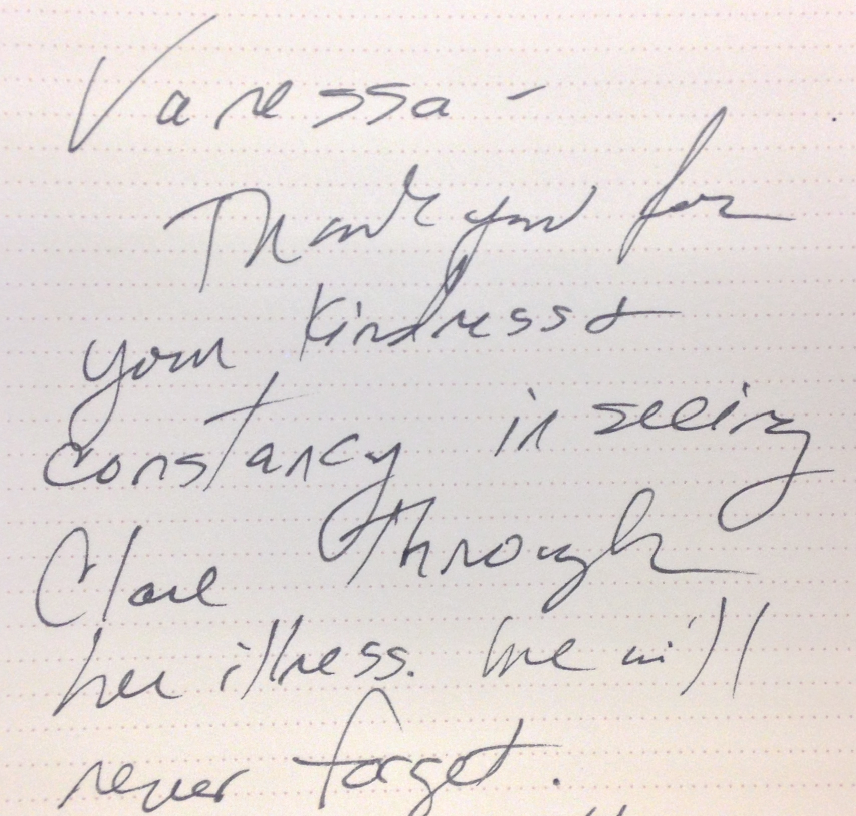 Vanessa -
Thank you for
your kindness &
constancy in seeing
Clare through
her illness. We will
never forget.